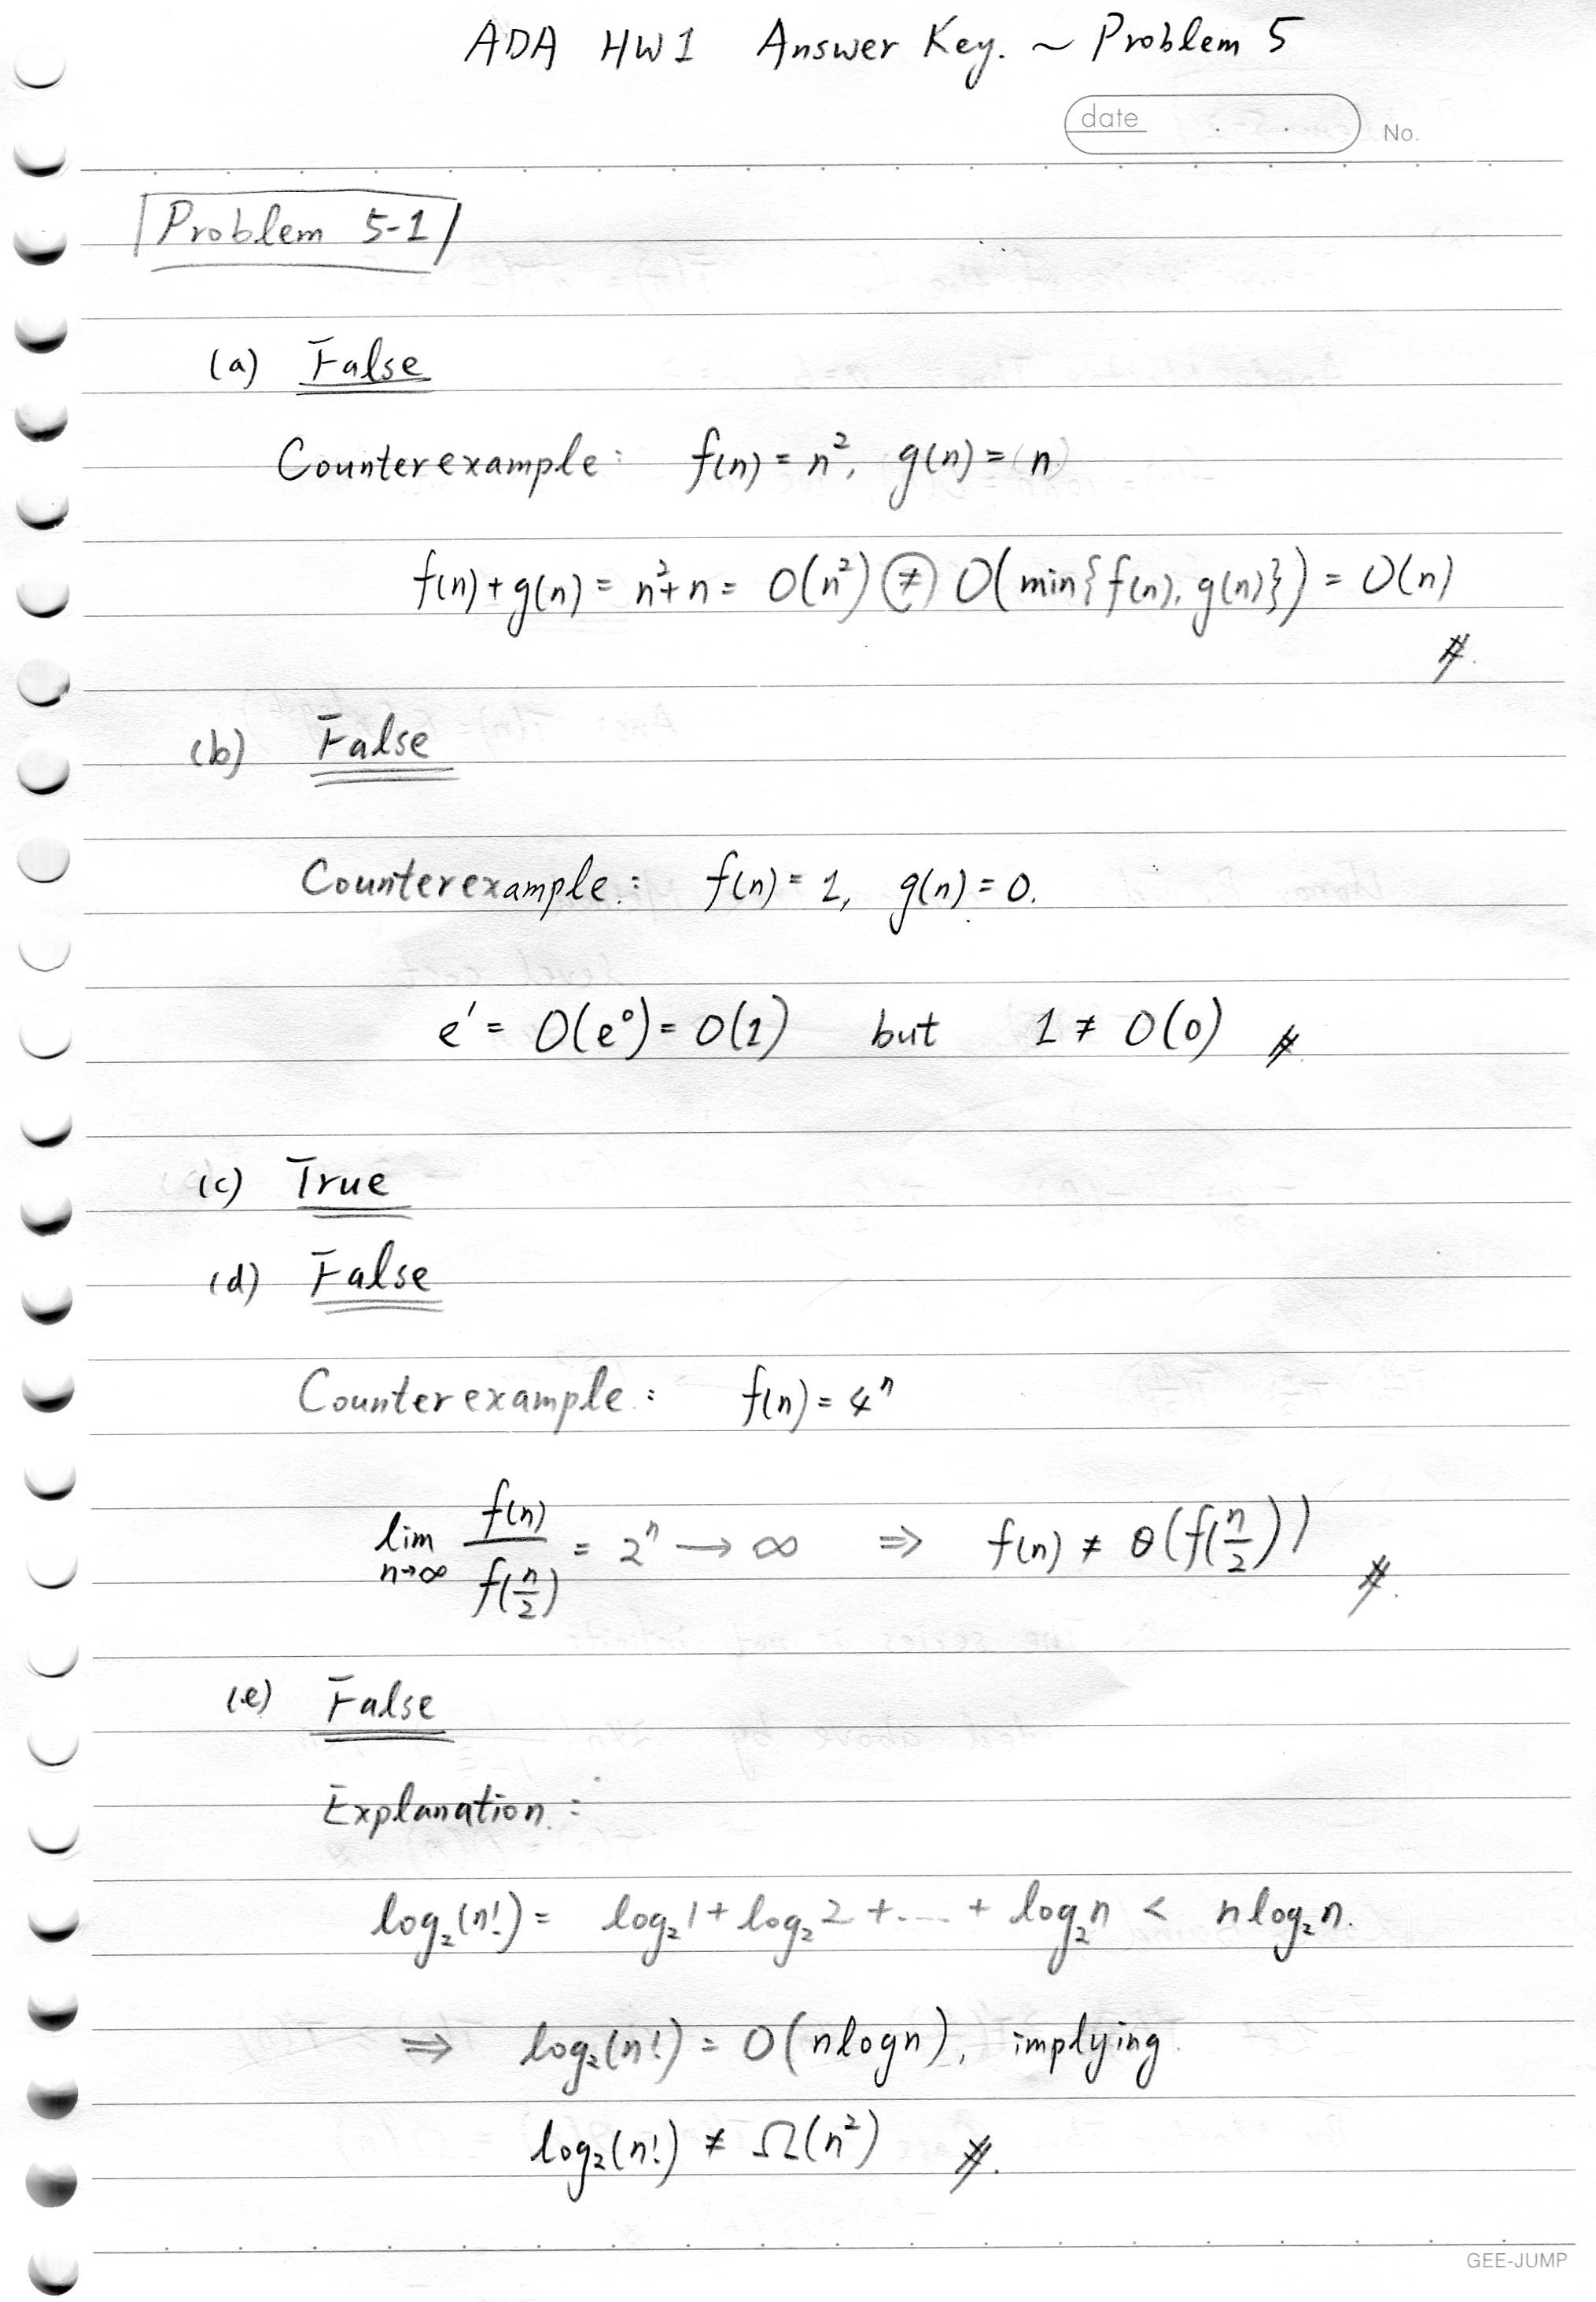 ADA HW1 Answer Key. ~ Problem 5
date . . No.
Problem 5-1
(a) False
Counterexample: f(n) = n², g(n) = n
f(n)+g(n) = n²+n = O(n²) ≠ O(min{f(n), g(n)}) = O(n)
#.
(b) False
Counterexample: f(n) = 1, g(n) = 0.
e¹ = O(e⁰) = O(1) but 1 ≠ O(0) #.
(c) True
(d) False
Counterexample: f(n) = 4ⁿ
lim n→∞ f(n) / f(n/2) = 2ⁿ → ∞ ⇒ f(n) ≠ θ(f(n/2)) #.
(e) False
Explanation:
log₂(n!) = log₂1 + log₂2 + .... + log₂n < nlog₂n.
⇒ log₂(n!) = O(nlogn), implying
log₂(n!) ≠ Ω(n²) #.
GEE-JUMP